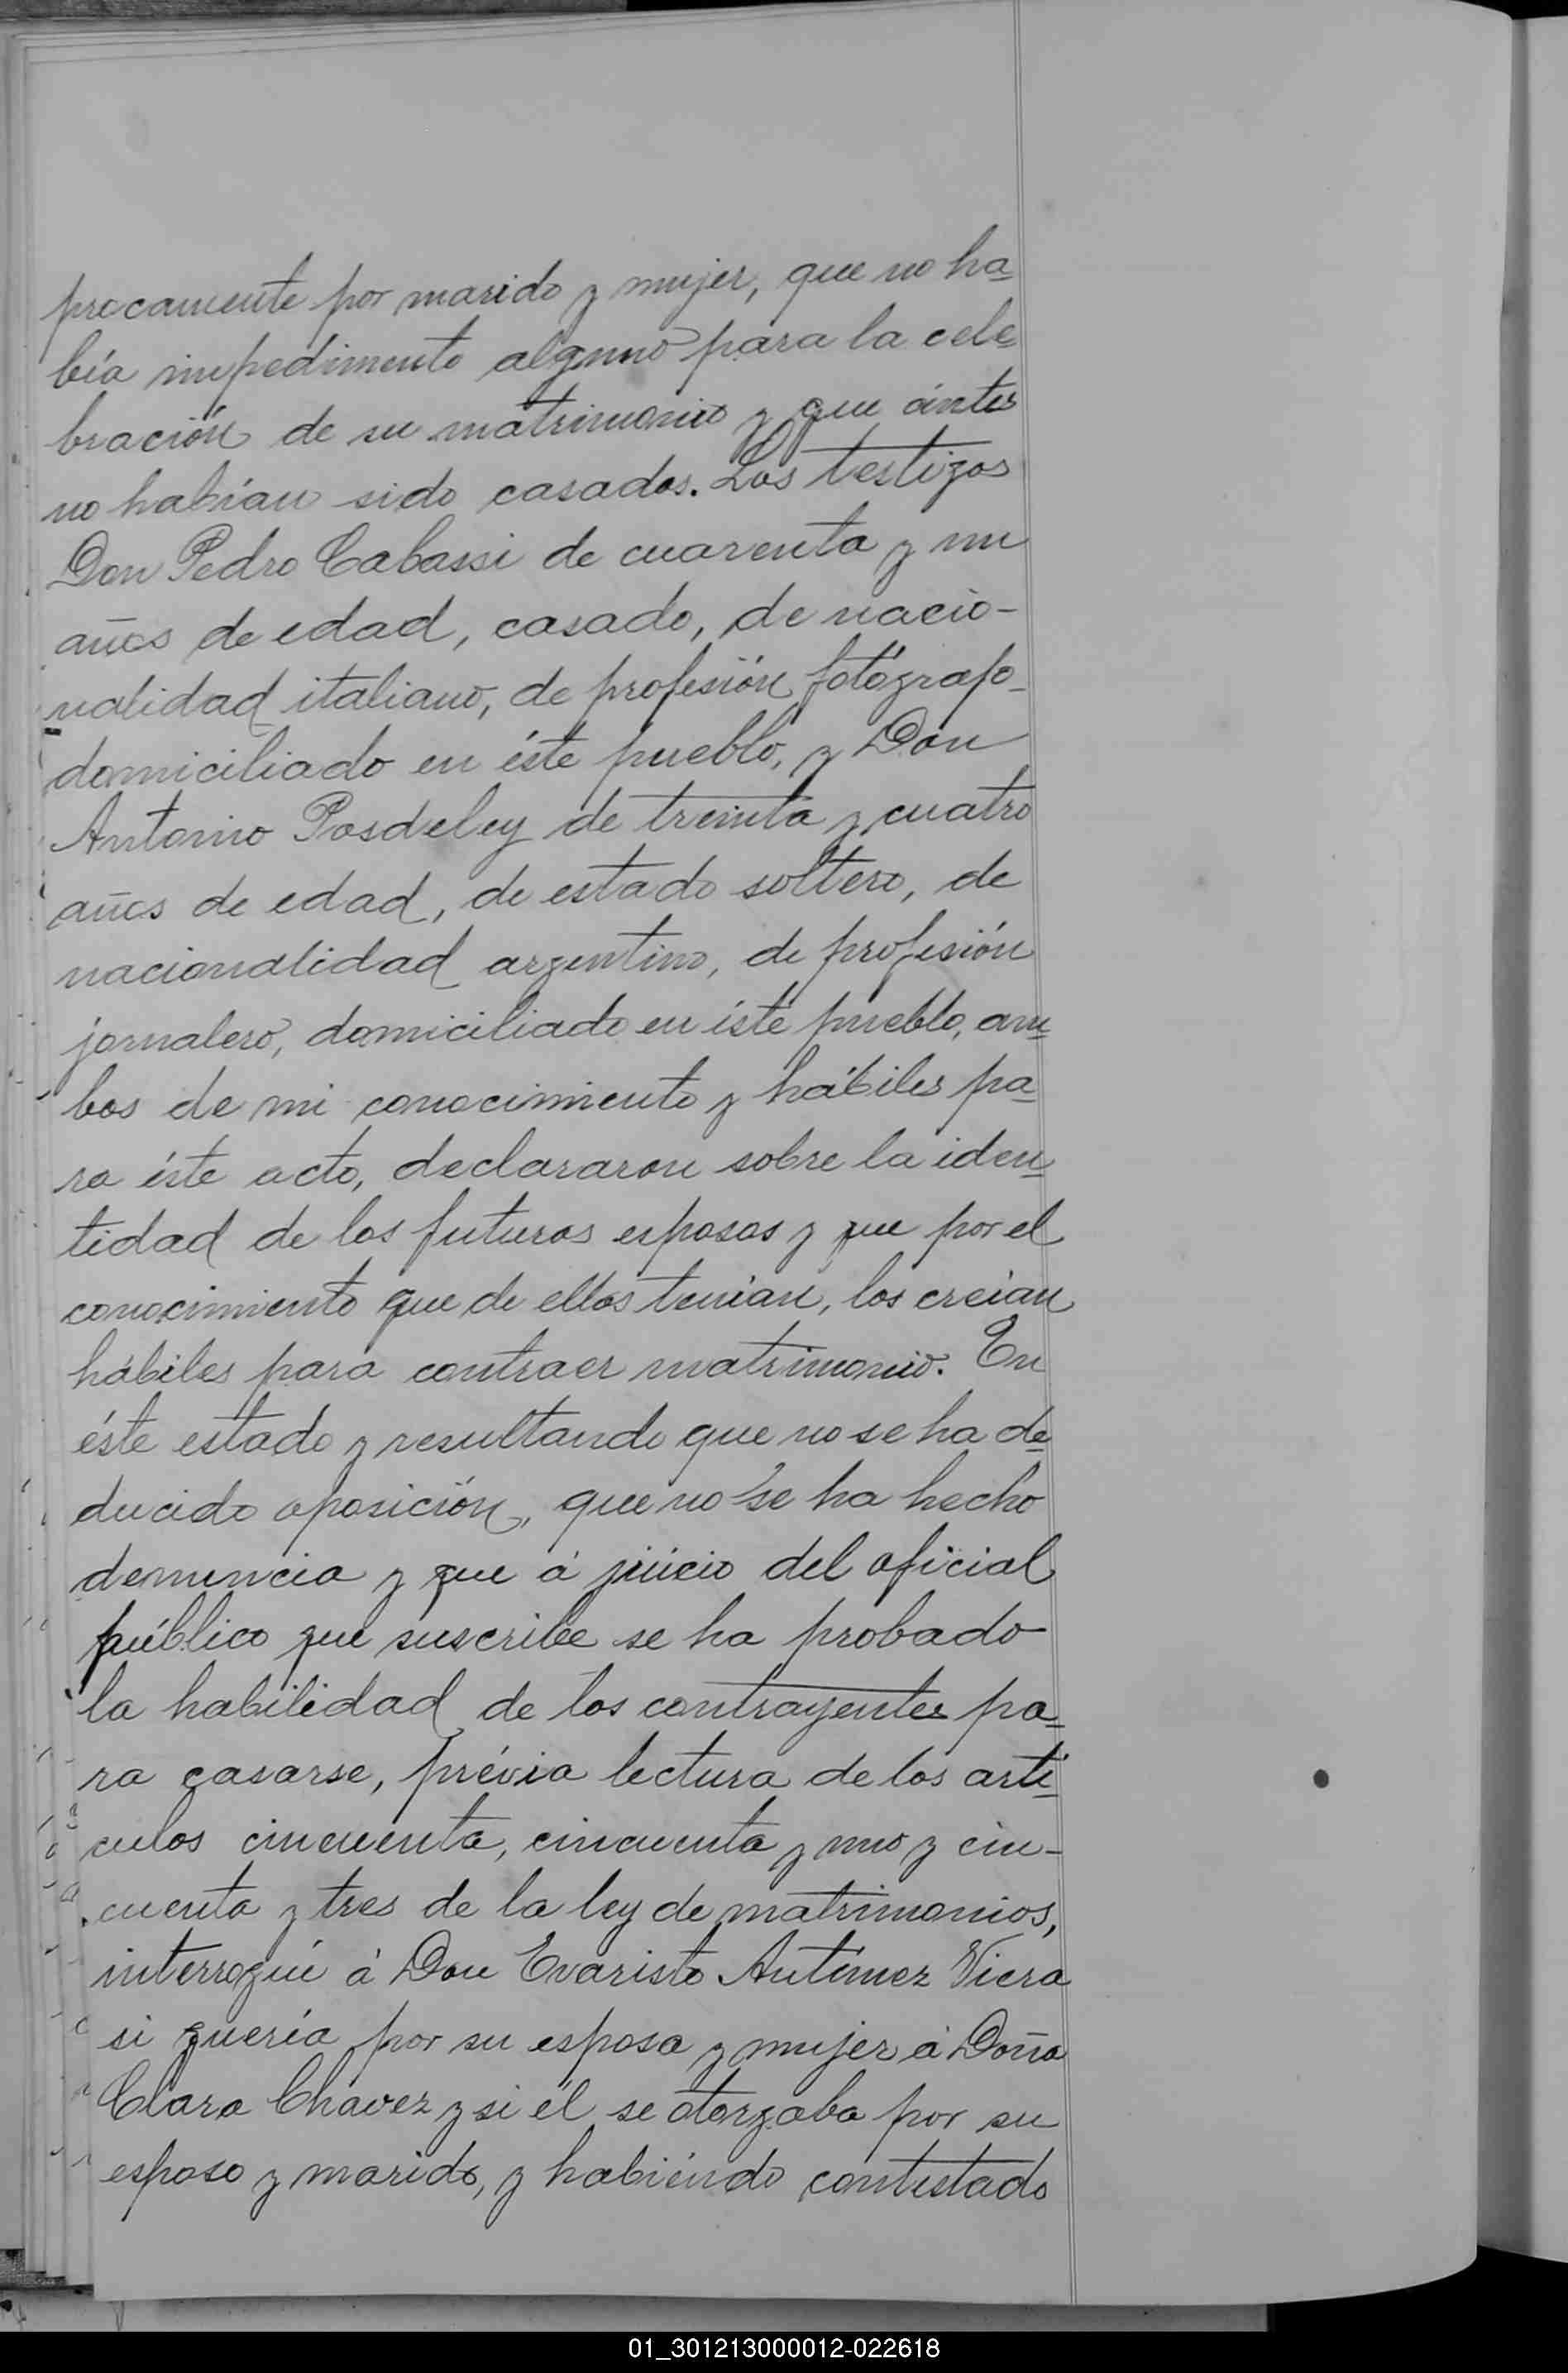 procamente por marido y mujer, que no ha=
bía impedimento alguno para la cele=
bración de su matrimonio y que ántes
no habían sido casados. Los testigos
Don Pedro Cabassi de cuarenta y un
años de edad, casado, de nacio-
nalidad italiano, de profesión fotógrafo
domiciliado en éste pueblo, y Don
Antonio Posdeley de treinta y cuatro
años de edad, de estado soltero, de
nacionalidad argentino, de profesión
jornalero, domiciliado en éste pueblo, am=
bos de mi conocimiento y hábiles pa=
ra éste acto, declararon sobre la iden=
tidad de los futuros esposos y que por el
conocimiento que de ellos tenían, los creían
hábiles para contraer matrimonio. En
éste estado y resultando que no se ha de=
ducido oposición, que no se ha hecho
denuncia y que á juicio del oficial
público que suscribe se ha probado
la habilidad de los contrayentes pa=
ra casarse, prévia lectura de los artí=
culos cincuenta, cincuenta y uno y cin-
cuenta y tres de la ley de matrimonios,
interrogué á Don Evaristo Antúnez Viera
si quería por su esposa y mujer á Doña
Clara Chávez y si él se otorgaba por su
esposo y marido, y habiéndo contestado
01_301213000012-022618